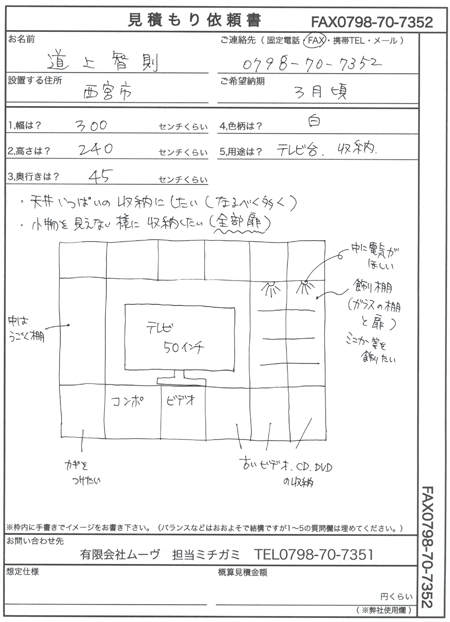 見積もり依頼書 FAX0798-70-7352
お名前
道上智則
ご連絡先（固定電話・FAX・携帯TEL・メール）
0798-70-7352
設置する住所
西宮市
ご希望納期
3月頃
1,幅は？ 300 センチくらい
4,色柄は？ 白
2,高さは？ 240 センチくらい
5,用途は？ テレビ台、収納
3,奥行きは？ 45 センチくらい
・天井いっぱいの収納にしたい（なるべく多く）
・小物を見えない様に収納したい（全部扉）
中に電気が
ほしい
飾り棚
（ガラスの棚
と扉）
ミニカー等を
飾りたい
中は
うごく棚
テレビ
50インチ
コンポ
ビデオ
カギを
つけたい
古いビデオ、CD、DVD
の収納
※枠内に手書きでイメージをお書き下さい。（バランスなどはおおよそで結構ですが1〜5の質問欄は埋めてください。）
お問い合わせ先
有限会社ムーヴ 担当ミチガミ TEL0798-70-7351
想定仕様
概算見積金額
円くらい
（※弊社使用欄）
FAX0798-70-7352